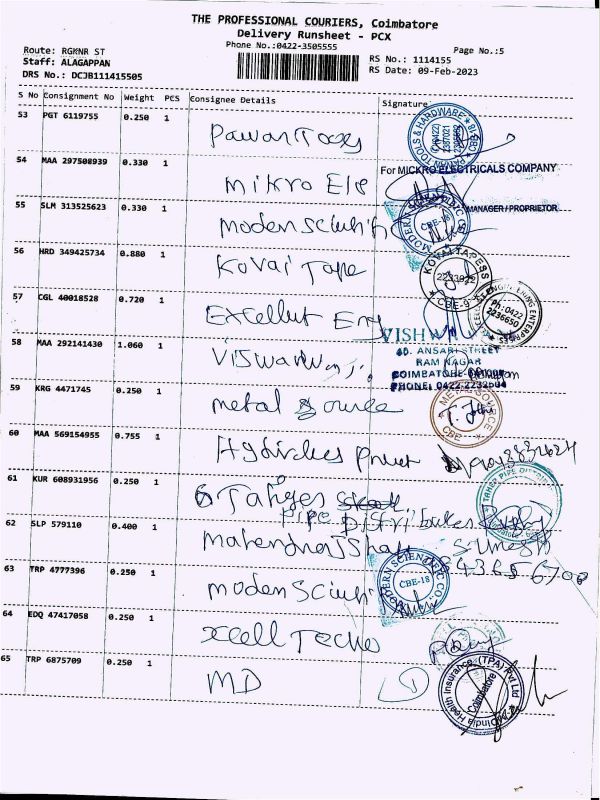 THE PROFESSIONAL COURIERS, Coimbatore
Delivery Runsheet - PCX
Phone No.:0422-3505555
Page No.:5
Route: RGKNR ST
Staff: ALAGAPPAN
DRS No.: DCJB111415505
RS No.: 1114155
RS Date: 09-Feb-2023
S No Consignment No Weight PCS Consignee Details Signature
53 PGT 6119755 0.250 1 Pawan Tools
TOOLS & HARDWARE
54 MAA 297508939 0.330 1 Mikro Ele
For MICKRO ELECTRICALS COMPANY
MANAGER / PROPRIETOR
55 SLM 313525623 0.330 1 Moden Scientific
MODERN SCIENTIFIC CO
CBE-18
56 HRD 349425734 0.880 1 Kovai Tape
KOVAI TAPESS
2233922
CBE-9
57 CGL 40018528 0.720 1 Excellent Eng
ENGINEERING ENTERPRISES
Ph: 0422
2236650
58 MAA 292141430 1.060 1
VISHW
40, ANSARI STREET
RAM NAGAR
COIMBATORE
PHONE: 0422-2232504
59 KRG 4471745 0.250 1 metal Source
METAL SOURCE
CBE
60 MAA 569154955 0.755 1
61 KUR 608931956 0.250 1
pipe Distributers
TAHER PIPE
62 SLP 579110 0.400 1 Mahendra J Shah
63 TRP 4777396 0.250 1 Moden Scienti
MODERN SCIENTIFIC CO
CBE-18
64 EDQ 47417058 0.250 1 xcell Techo
65 TRP 6875709 0.250 1 MD
Mdindia Health Insurance (TPA) Pvt Ltd
Coimbatore